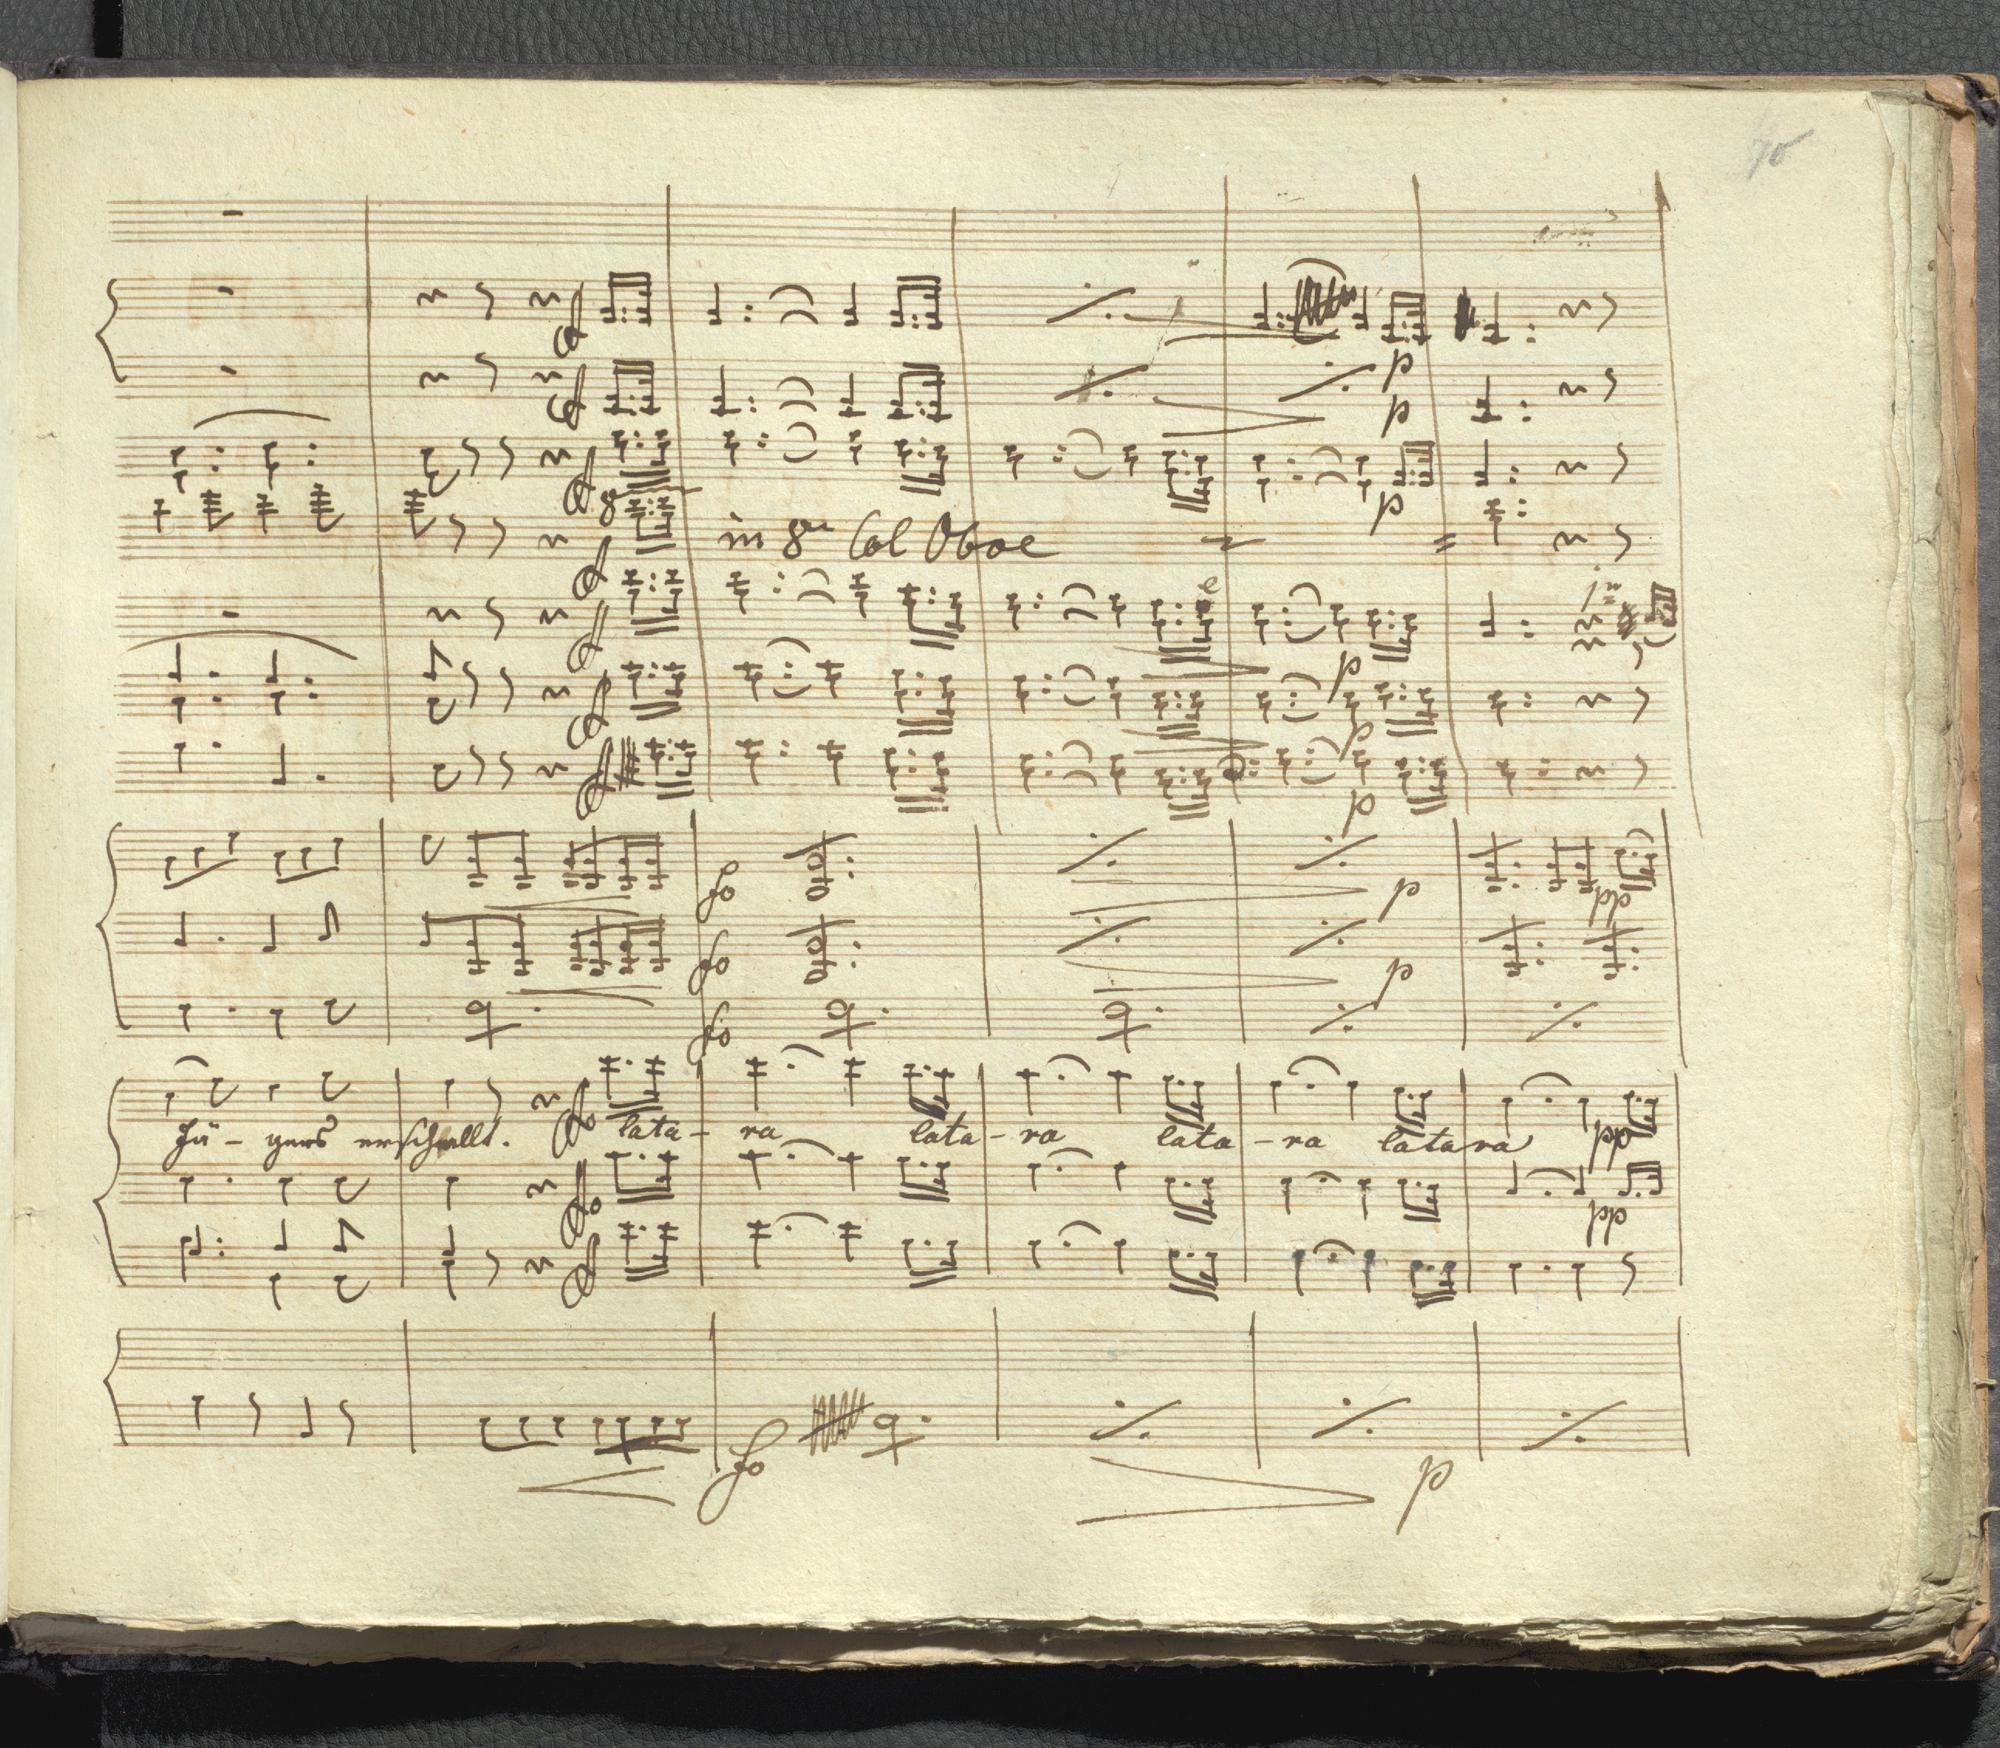 70
p
p
p
in 8va Col Oboe
1mo
p
p
p
fo
p
pp
fo
p
fo
fo
Jä - gers erschallt. lata - ra lata - ra lata - ra latara
pp
fo
pp
fo
p